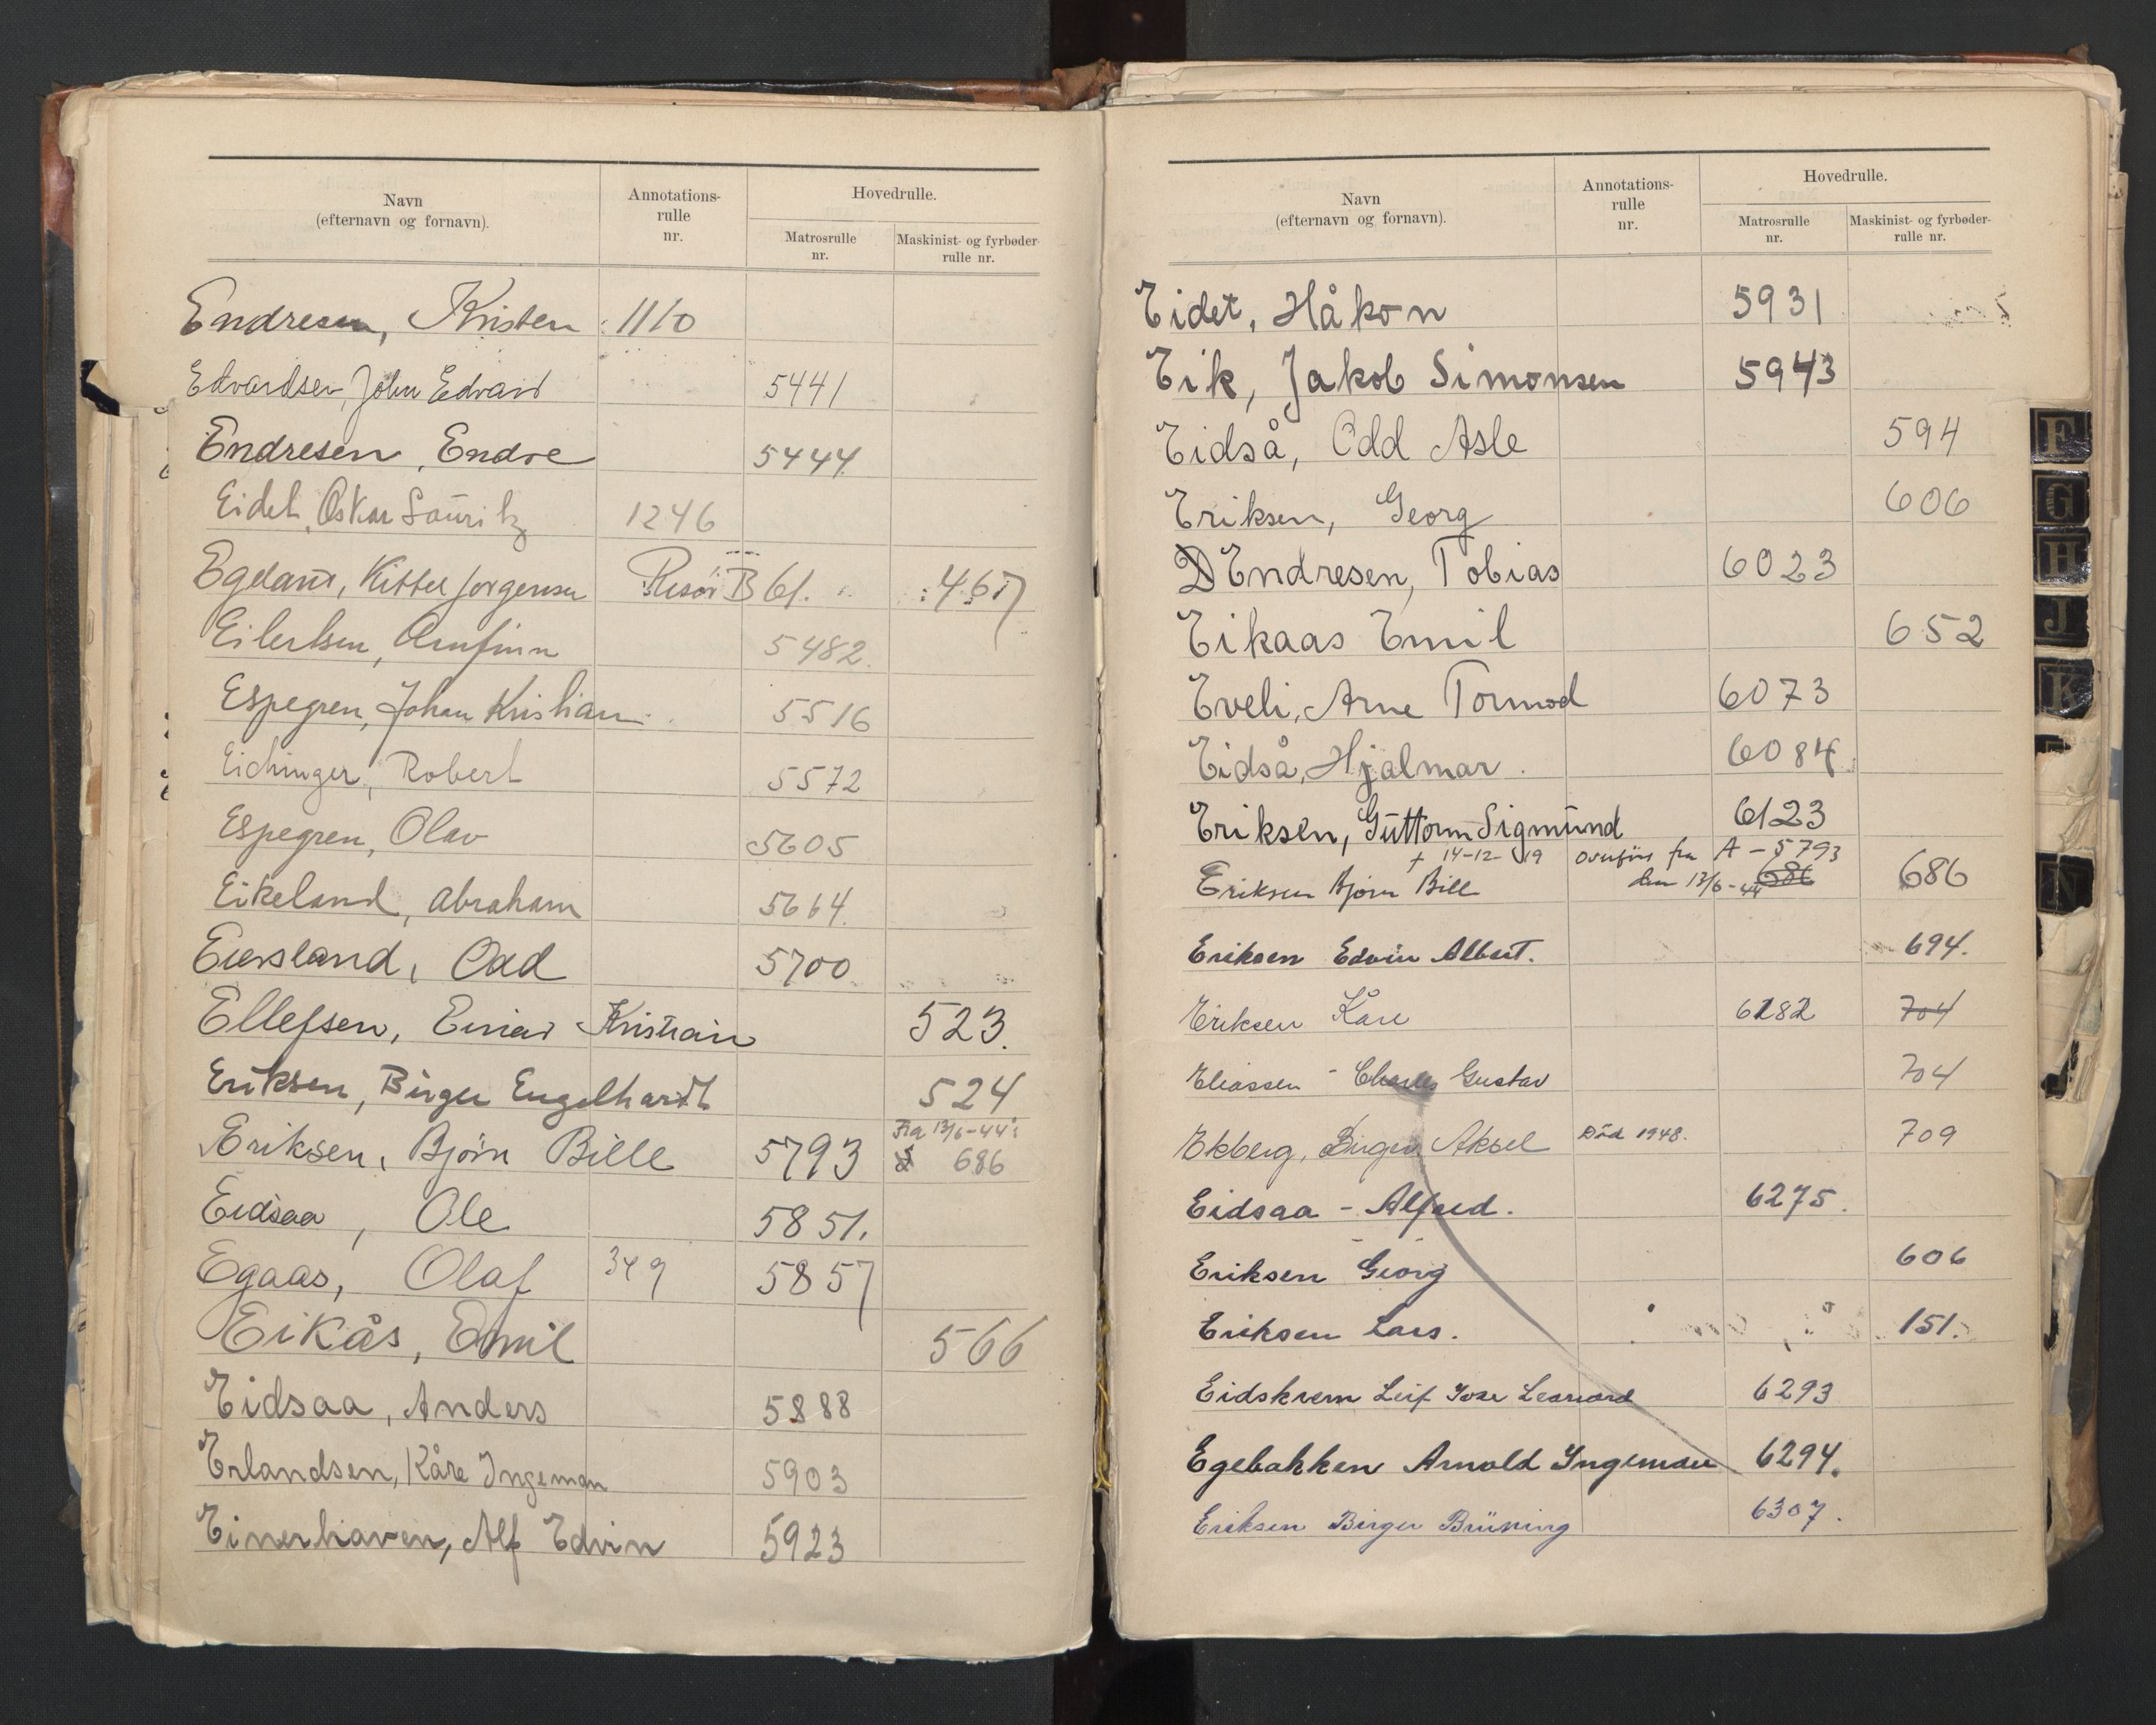 Navn
(efternavn og fornavn).
Annotations-
rulle
nr.
Hovedrulle.
Matrosrulle
nr.
Maskinist- og fyrbøder-
rulle nr.
Endresen, Kristen 1110
Edvardsen, John Edvard 5441
Endresen, Endre 5444.
Eidet, Oskar Lauritz 1246
Egeland, Kittel Jørgensen Risør B 61. 467
Eilertsen, Arnfinn 5482.
Espegren, Johan Kristian 5516
Eichinger, Robert 5572
Espegren, Olav 5605
Eikeland, Abraham 5664.
Eiersland, Odd 5700
Ellefsen, Einar Kristian 523.
Eriksen, Birger Engelhardt 524
Eriksen, Bjørn Bille 5793 Fra 13/6-44 686
Eidsaa, Ole 5851.
Egaas, Olaf 349 5857
Eikås, Emil 566
Eidsaa, Anders 5888
Erlandsen, Kåre Ingeman 5903
Einerhaven, Alf Edvin 5923
Navn
(efternavn og fornavn).
Annotations-
rulle
nr.
Hovedrulle.
Matrosrulle
nr.
Maskinist- og fyrbøder-
rulle nr.
Eidet, Håkon 5931
Eik, Jakob Simonsen 5943
Eidså, Odd Asle 594
Eriksen, Georg 606
Endresen, Tobias 6023
Eikaas Emil 652
Eveli, Arne Tormod 6073
Eidså, Hjalmar 6084
Eriksen, Guttorm Sigmund 6123
+ 14-12-19 overført fra A-5793
Eriksen Bjørn Bill den 13/6-44 686 686
Eriksen Edvin Albert. 694.
Eriksen Kåre 6282 704
Eliassen - Charles Gustav 704
Ekberg, Birger Aksel Død 1948. 709
Eidsaa - Alfred. 6275.
Eriksen Georg 606
Eriksen Lars. 151.
Eidskrem Leif Leonard 6293
Egebakken Arnold Ingeman 6294.
Eriksen Birger Brüning 6307.
F
G
H
J
K
N